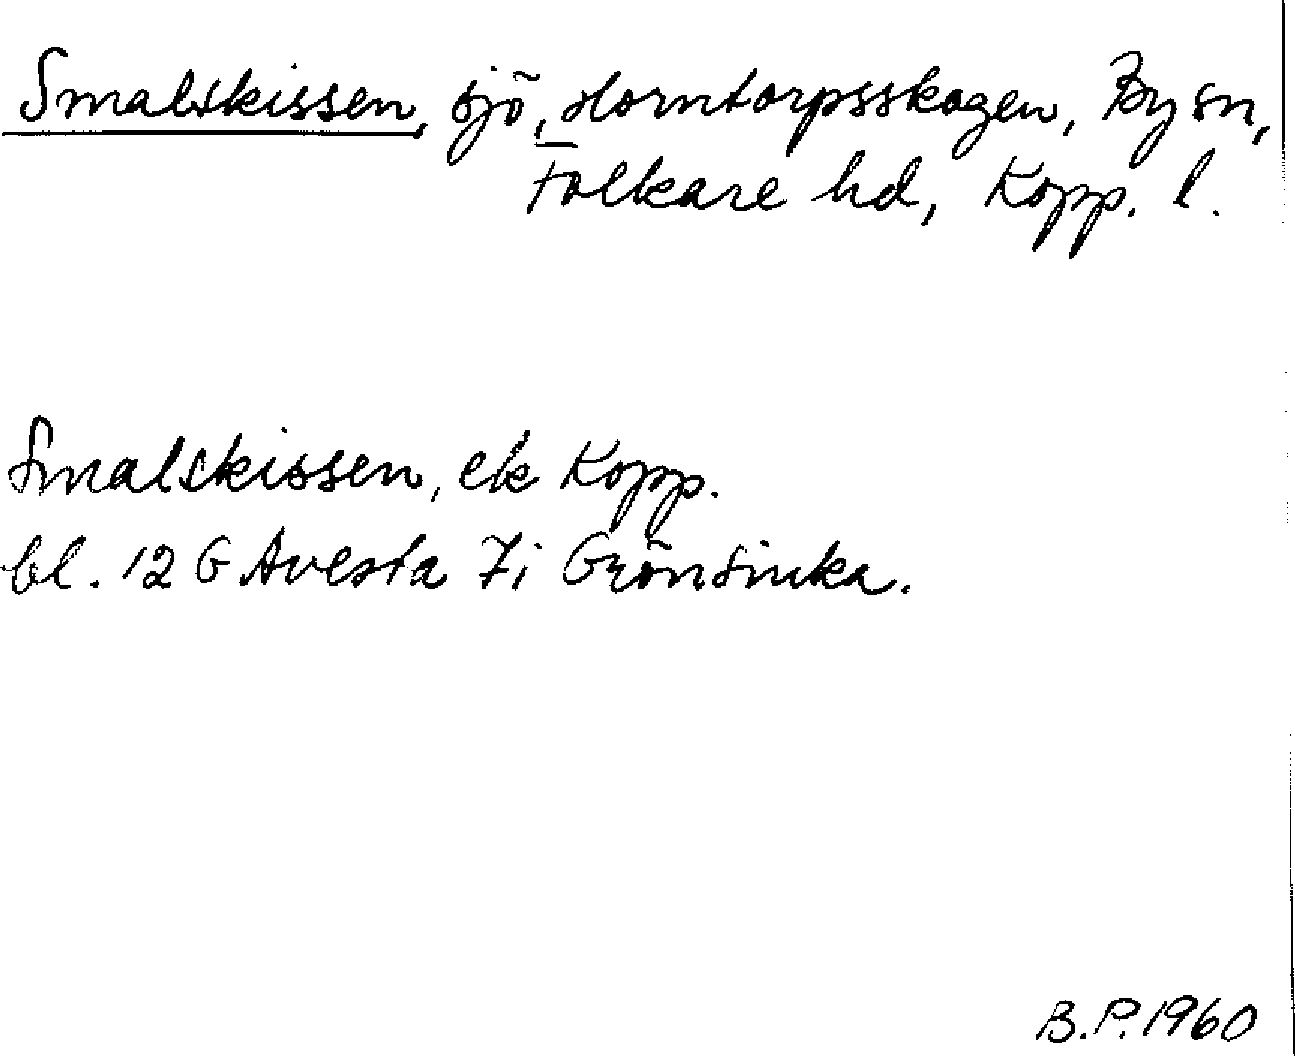 Smalskissen, sjö, Horntorpsskogen, By sn,
Folkare hd, Kopp. l.
Smalskissen, ek Kopp.
bl. 12 G Avesta 7i Grönsinka.
B.P. 1960